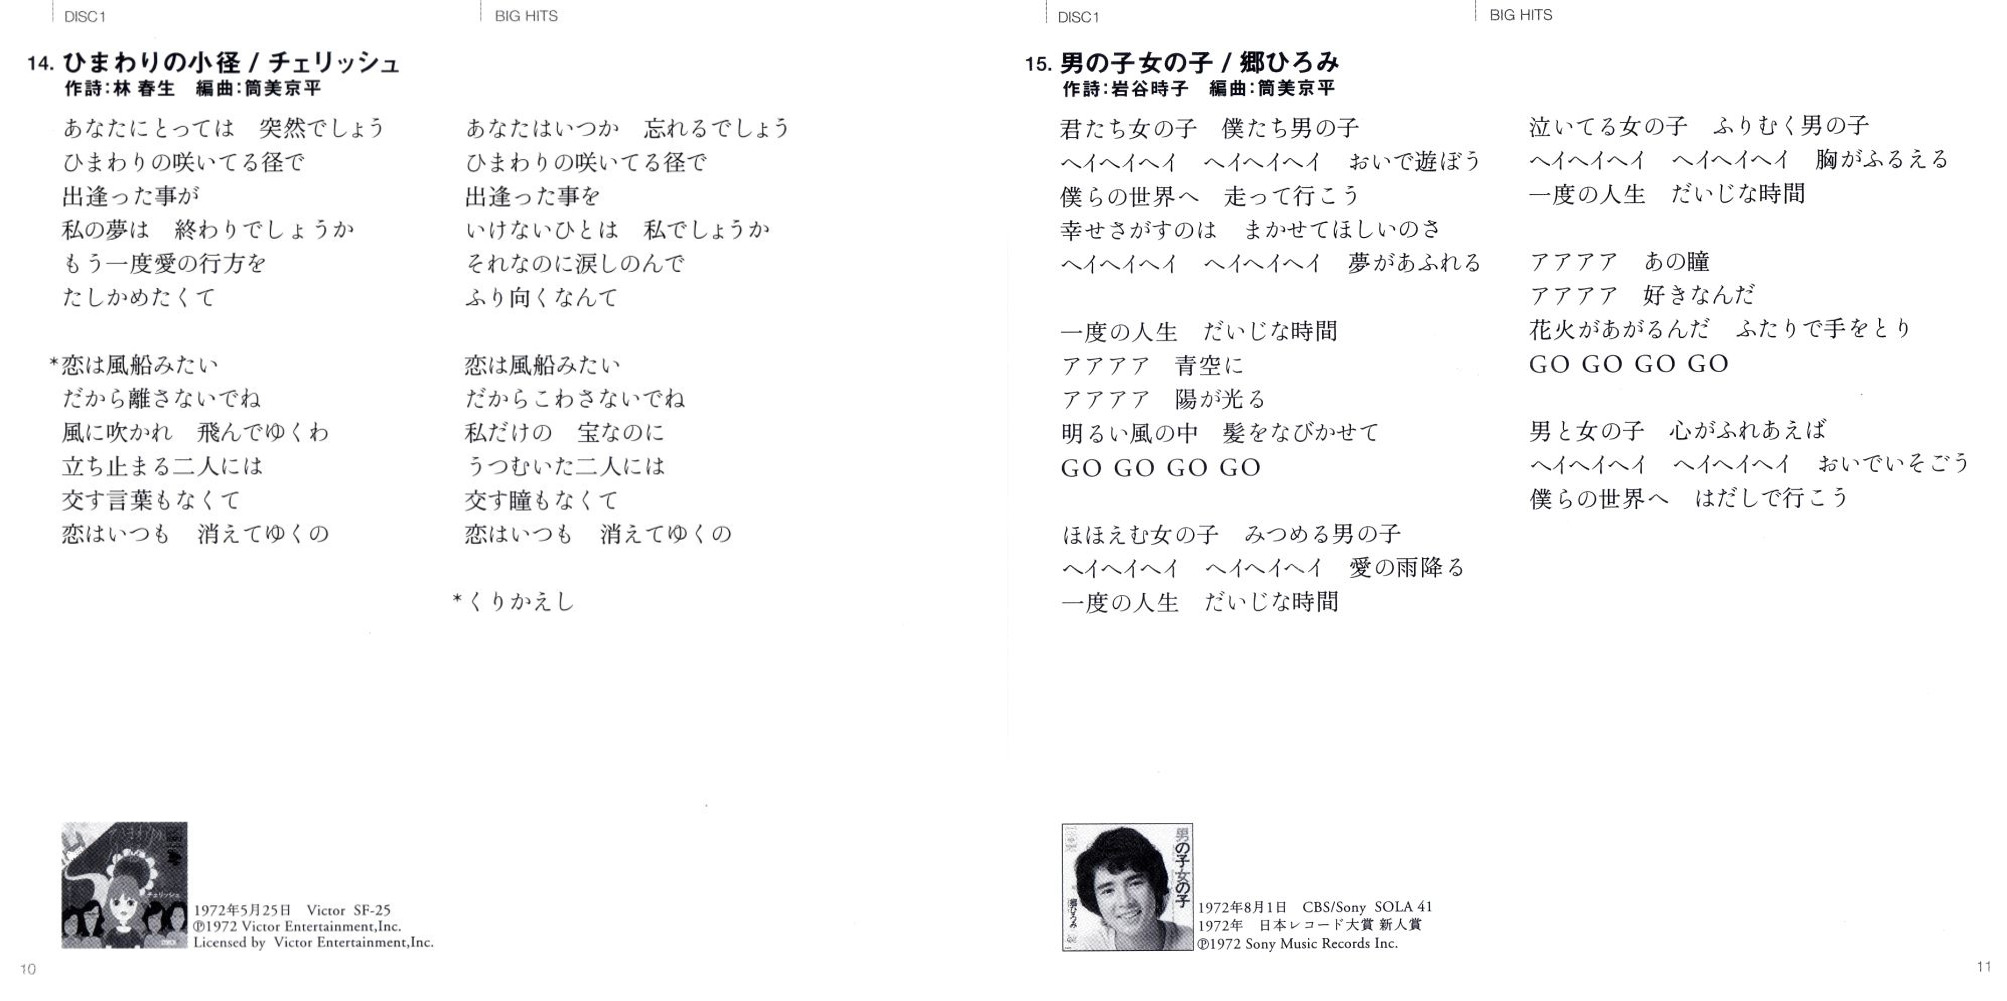 DISC1
BIG HITS
14. ひまわりの小径 / チェリッシュ
作詩:林 春生　編曲:筒美京平
あなたにとっては　突然でしょう
ひまわりの咲いてる径で
出逢った事が
私の夢は　終わりでしょうか
もう一度愛の行方を
たしかめたくて
*恋は風船みたい
だから離さないでね
風に吹かれ　飛んでゆくわ
立ち止まる二人には
交す言葉もなくて
恋はいつも　消えてゆくの
あなたはいつか　忘れるでしょう
ひまわりの咲いてる径で
出逢った事を
いけないひとは　私でしょうか
それなのに涙しのんで
ふり向くなんて
恋は風船みたい
だからこわさないでね
私だけの　宝なのに
うつむいた二人には
交す瞳もなくて
恋はいつも　消えてゆくの
*くりかえし
チェリッシュ
1972年5月25日　Victor SF-25
℗1972 Victor Entertainment,Inc.
Licensed by Victor Entertainment,Inc.
10
DISC1
BIG HITS
15. 男の子女の子 / 郷ひろみ
作詩:岩谷時子　編曲:筒美京平
君たち女の子　僕たち男の子
ヘイヘイヘイ　ヘイヘイヘイ　おいで遊ぼう
僕らの世界へ　走って行こう
幸せさがすのは　まかせてほしいのさ
ヘイヘイヘイ　ヘイヘイヘイ　夢があふれる
一度の人生　だいじな時間
アアアア　青空に
アアアア　陽が光る
明るい風の中　髪をなびかせて
GO GO GO GO
ほほえむ女の子　みつめる男の子
ヘイヘイヘイ　ヘイヘイヘイ　愛の雨降る
一度の人生　だいじな時間
泣いてる女の子　ふりむく男の子
ヘイヘイヘイ　ヘイヘイヘイ　胸がふるえる
一度の人生　だいじな時間
アアアア　あの瞳
アアアア　好きなんだ
花火があがるんだ　ふたりで手をとり
GO GO GO GO
男と女の子　心がふれあえば
ヘイヘイヘイ　ヘイヘイヘイ　おいでいそごう
僕らの世界へ　はだしで行こう
男の子女の子
郷ひろみ
1972年8月1日　CBS/Sony SOLA 41
1972年　日本レコード大賞 新人賞
℗1972 Sony Music Records Inc.
11